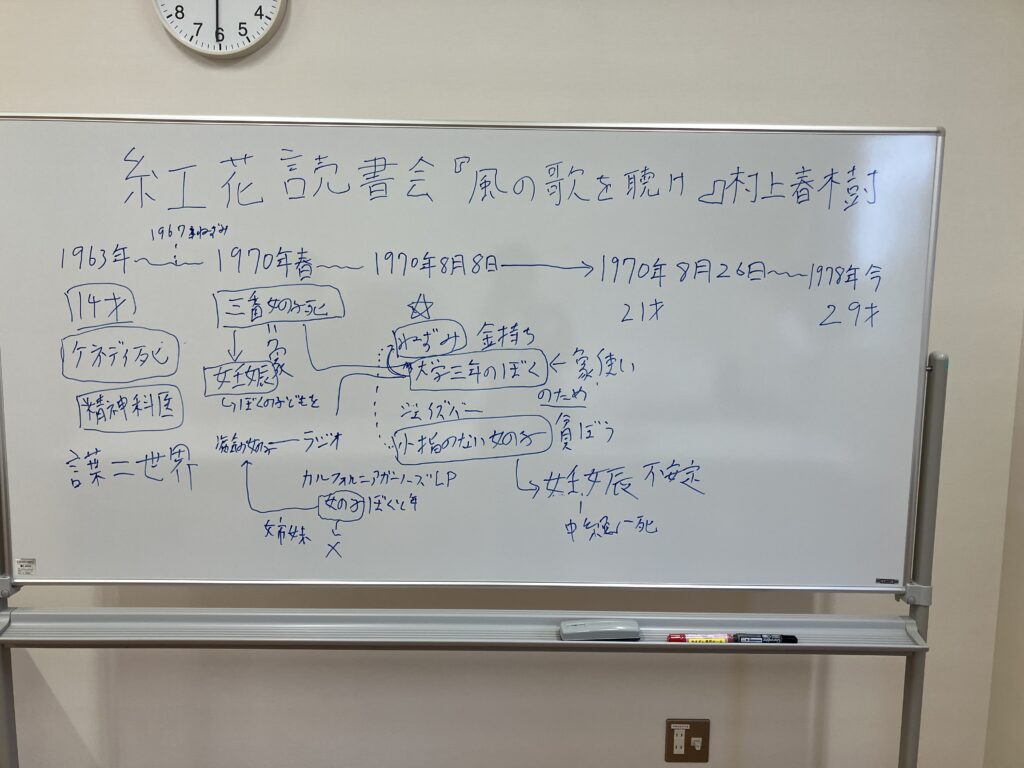 紅花読書会『風の歌を聴け』村上春樹
1967年ねずみ
1963年 1970年春 1970年8月8日 → 1970年8月26日 1978年今
14才 三番女の子死 ☆ 21才 29才
ケネディ死 妊娠 ねずみ 金持ち
↳ぼくの子どもを 大学三年のぼく ← 象使い
のため
精神科医 ジェイズバー
女の子 ラジオ 小指のない女の子 貧ぼう
言葉=世界 妊娠 不安定
カルフォルニアガールズLP
女の子 ぼくと年
姉妹 × 死
8 7 6 5 4